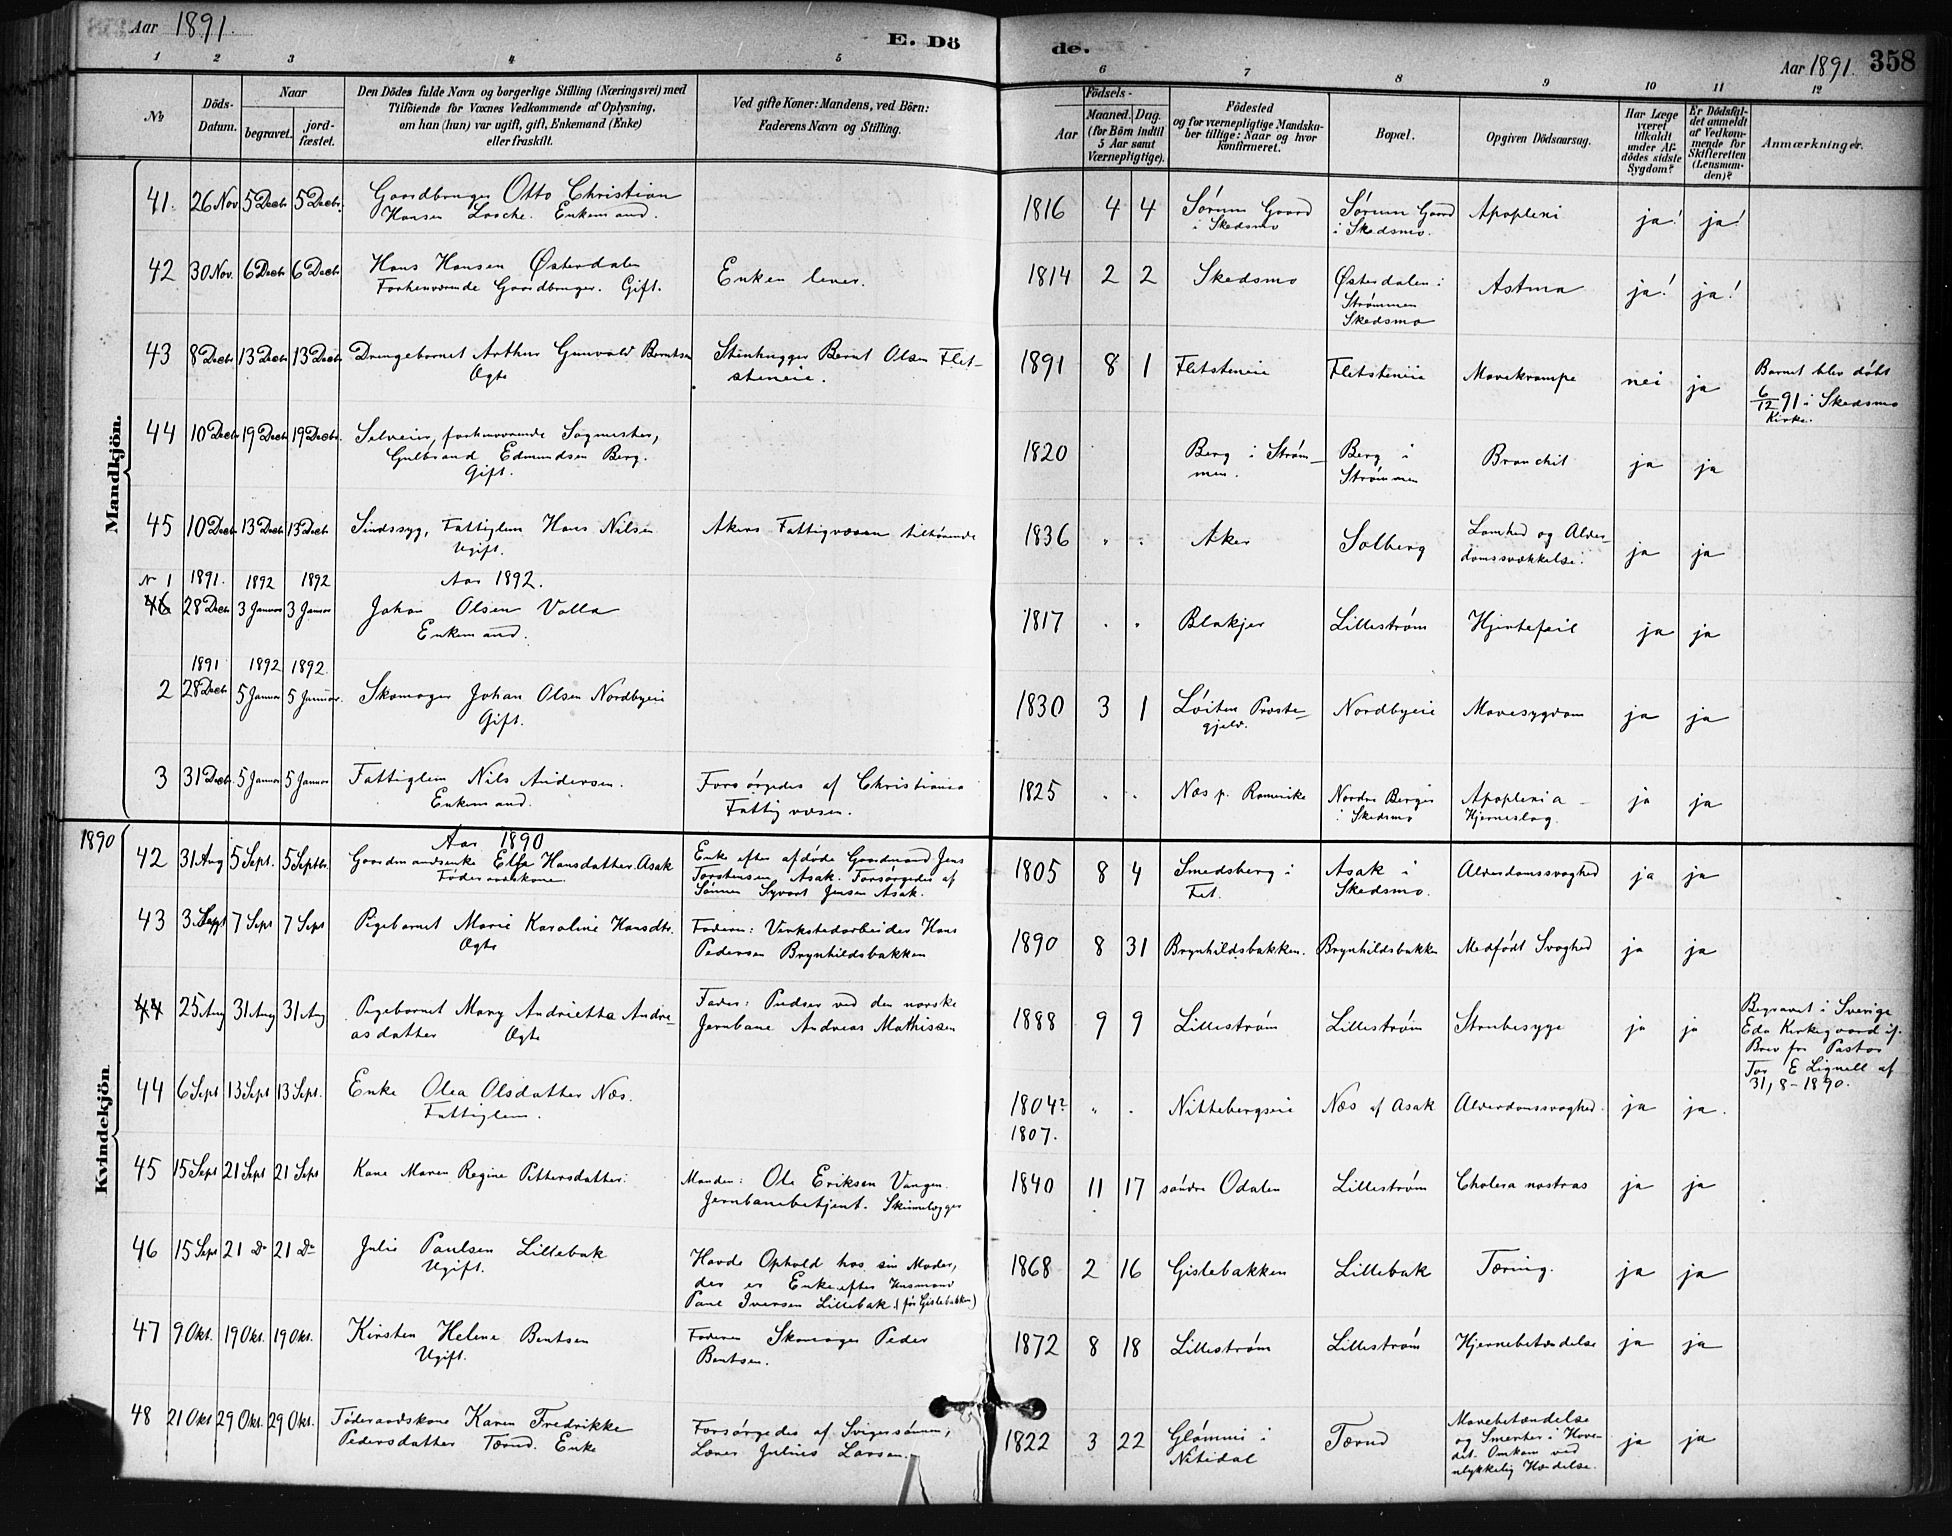 Aar 1891.
E. Dö
de.
Aar 1891. 358
1 2 3 4 5 6 7 8 9 10 11 12
No
Döds-
Datum.
Naar
begravet.
jord-
fæstet.
Den Dödes fulde Navn og borgerlige Stilling (Næringsvei) med
Tilföiende for Voxnes Vedkommende af Oplysning,
om han (hun) var ugift, gift, Enkemand (Enke)
eller fraskilt.
Ved gifte Koner: Mandens, ved Börn:
Faderens Navn og Stilling.
Födsels-
Aar
Maaned. Dag.
(for Börn indtil
5 Aar samt
Værnepligtige).
Födested
og for værnepligtige Mandska-
ber tillige: Naar og hvor
konfirmeret.
Bopæl.
Opgiven Dödsaarsag.
Har Læge
været
tilkaldt
under Af-
dödes sidste
Sygdom?
Er Dödsfal-
det anmeldt
af Vedkom-
mende for
Skifteretten
(Lensman-
den)?
Anmærkninger.
Mandkjön.
41. 26 Nov 5 Decbr 5 Decbr. Gaardbruger Otto Christian
Hansen Lasche. Enkemand.
1816 4 4 Sørum Gaard
i Skedsmo
Sørum Gaard
i Skedsmo.
Apoplexi ja! ja!
42 30 Nov. 6 Decbr 6 Decbr Hans Hansen Østerdalen
Forhenværende Gaardbruger. Gift.
Enken lever.
1814 2 2 Skedsmo Østerdalen i
Strømmen
Skedsmo
Astma ja! ja!
43 8 Decbr 13 Decbr 13 Decbr Drengebarnet Arthur Gunvald Berntsen
Ægte
Stenhugger Bernt Olsen Flet-
steneie.
1891 8 1 Fletsteneie Fletsteneie Mavekrampe nei ja
Barnet blev døbt
6/12 91 i Skedsmo
Kirke.
44 10 Decbr 19 Decbr 19 Decbr. Selveier, forhenværende Sagmester,
Gulbrand Edmundsen Berg.
Gift.
1820 Berg i Strøm-
men.
Berg i
Strømmen
Bronchit ja ja
45 10 Decbr 13 Decbr 13 Decbr Sindssyg, Fattiglem Hans Nilsen
Ugift.
Akers Fattigvæsen tilhørende
1836 " " Aker Solberg Lamhed og Alder-
domssvækkelse.
ja ja
Nr 1 1891. 1892 1892 Aar 1892.
46 28 Decbr 3 Januar 3 Januar Johan Olsen Valla
Enkemand.
1817 " " Blakjer Lillestrøm Hjertefeil ja ja
1891 1892 1892.
2 28 Decbr 5 Januar 5 Januar. Skomager Johan Olsen Nordbyeie
Gift.
1830 3 1 Løiten Præste-
gjeld.
Nordbyeie Mavesygdom ja ja
3 31 Decbr. 5 Januar 5 Januar Fattiglem Nils Andersen.
Enkemand.
Forsørgedes af Christiania
Fattigvæsen.
1825 " " Næs p. Romerike Nordre Berger
i Skedsmo
Apoplexia -
Hjerneslag.
ja ja
1890
Kvindekjön
Aar 1890
42 31 Aug 5 Sept. 5 Septbr. Gaardmandsenke Elsa Hansdatter Asak
Føderaadskone
Enke efter afdøde Gaardmand Jens
Torstensen Asak. Forsørgedes af
Sønnen Syvert Jensen Asak.
1805 8 4 Smedsberg i
Fet.
Asak i
Skedsmo.
Alderdomssvaghed ja ja
43 3 Sept 7 Sept 7 Sept Pigebarnet Marie Karoline Hansdtr.
Ægte
Faderen: Verkstedarbeider Hans
Pedersen Brynhildsbakken
1890 8 31 Brynhildsbakken. Brynhildsbakken Medfødt Svaghed ja ja
44 25 Aug 31 Aug 31 Aug Pigebarnet Mary Andrietta Andre-
asdatter Ægte
Fader: Pudser ved den norske
Jernbane Andreas Mathissen
1888 9 9 Lillestrøm Lillestrøm Strubesyge ja ja
Begravet i Sverige
Eda Kirkegaard if.
Brev fra Pastor
Tor E Lignell af
31, 8 - 1890.
44 6 Sept 13 Sept 13 Sept. Enke Olea Olsdatter Næs.
Fattiglem.
1804?
1807.
" " Nittebergseie Næs af Asak Alderdomssvaghed. ja ja.
45 15 Sept 21 Sept 21 Sept Kone Maren Regine Pettersdatter.
Manden: Ole Eriksen Vangen.
Jernbanebetjent. Skinnelægger
1840 11 17 søndre Odalen Lillestrøm Cholera nostras ja ja
46 15 Sept 21 Do 21 Do Julie Paulsen Lillebak
Ugift.
Havde Ophold hos sin Moder,
der er Enke efter Husmand
Paul Iversen Lillebak. (før Gislebakken)
1868 2 16 Gislebakken Lillebak Tæring. ja ja
47 9 Okt. 19 Okt. 19 Okt. Kirsten Helene Bentsen
Ugift.
Faderen Skomager Peder
Bentsen.
1872 8 18 Lillestrøm Lillestrøm Hjernebetændelse ja ja
48 21 Okt 29 Okt. 29 Okt. Føderaadskone Karen Fredrikke
Pedersdatter Tærud. Enke
Forsørgedes af Svigersønnen,
Lærer Julius Larsen.
1822 3 22 Glømmi i
Nitedal
Tærud Mavebetændelse
og Smerter i Hove-
det. Omkom ved
ulykkelig Hændelse.
ja ja